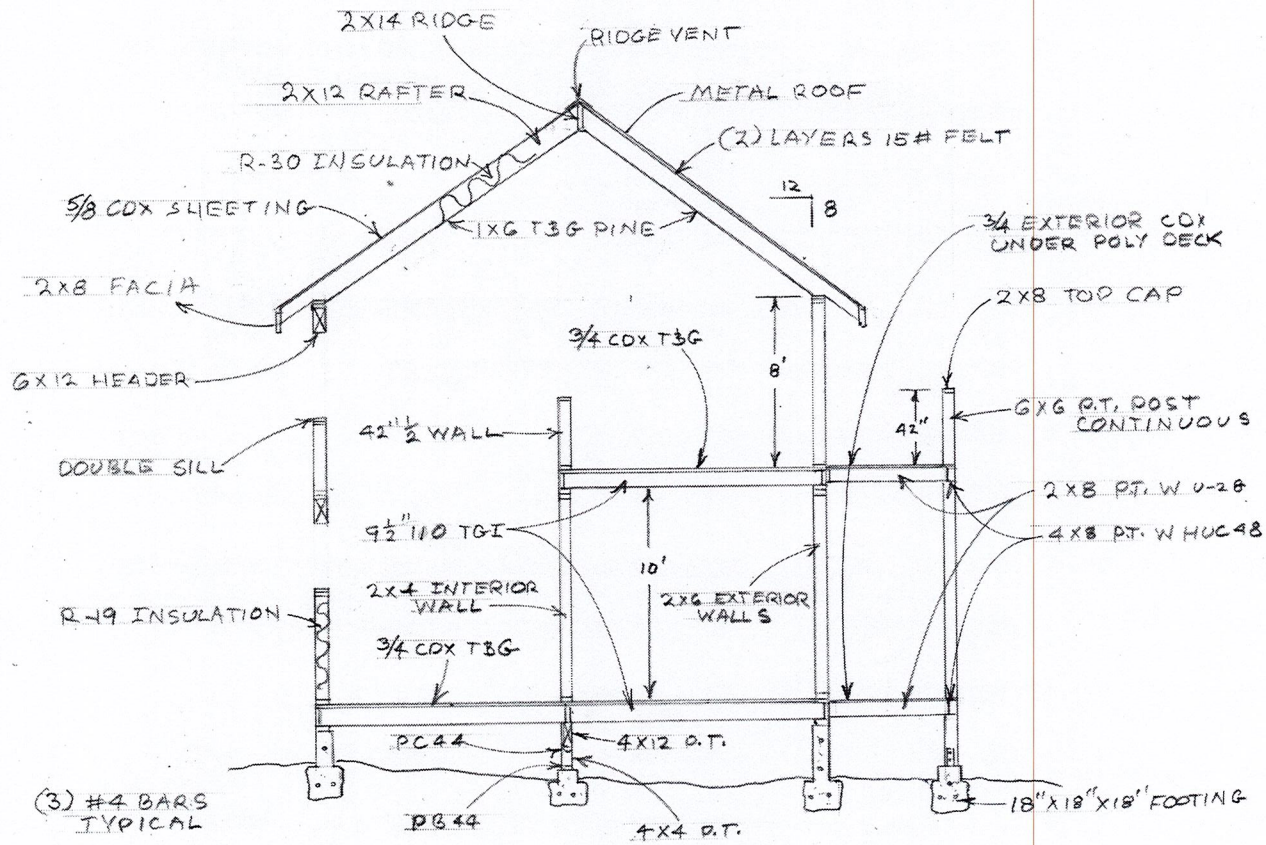 2X14 RIDGE
RIDGE VENT
2X12 RAFTER
METAL ROOF
(2) LAYERS 15# FELT
R-30 INSULATION
12
8
5/8 CDX SHEETING
1X6 T&G PINE
3/4 EXTERIOR CDX
UNDER POLY DECK
2X8 FACIA
2X8 TOP CAP
3/4 CDX T&G
8'
6X12 HEADER
6X6 P.T. POST
CONTINUOUS
42" 1/2 WALL
42"
DOUBLE SILL
2X8 P.T. W U-28
9 1/2" 110 TGI
4X8 P.T. W HUC48
10'
2X4 INTERIOR
WALL
2X6 EXTERIOR
WALLS
R-19 INSULATION
3/4 CDX T&G
PC44
4X12 P.T.
(3) #4 BARS
TYPICAL
PB44
4X4 P.T.
18"X18"X18" FOOTING